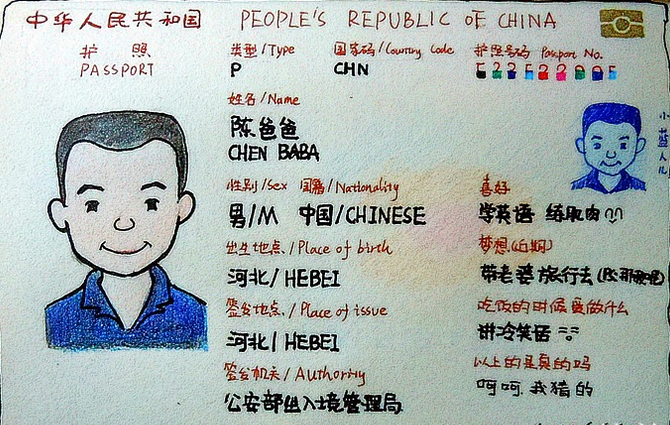 中华人民共和国 PEOPLE'S REPUBLIC OF CHINA
护照 类型/Type 国家码/Country Code 护照号码 Passport No.
PASSPORT P CHN
姓名/Name
陈爸爸
CHEN BABA
小蓝人儿
性别/Sex 国籍/Nationality 喜好
男/M 中国/CHINESE 学英语 练肌肉
出生地点/Place of birth 梦想(近期)
河北/HEBEI 带老婆旅行去
签发地点/Place of issue 吃饭的时候爱做什么
河北/HEBEI 讲冷笑话
签发机关/Authority 以上的是真的吗
公安部出入境管理局 呵呵.我猜的